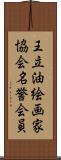 王立油絵画家
協会名誉会員